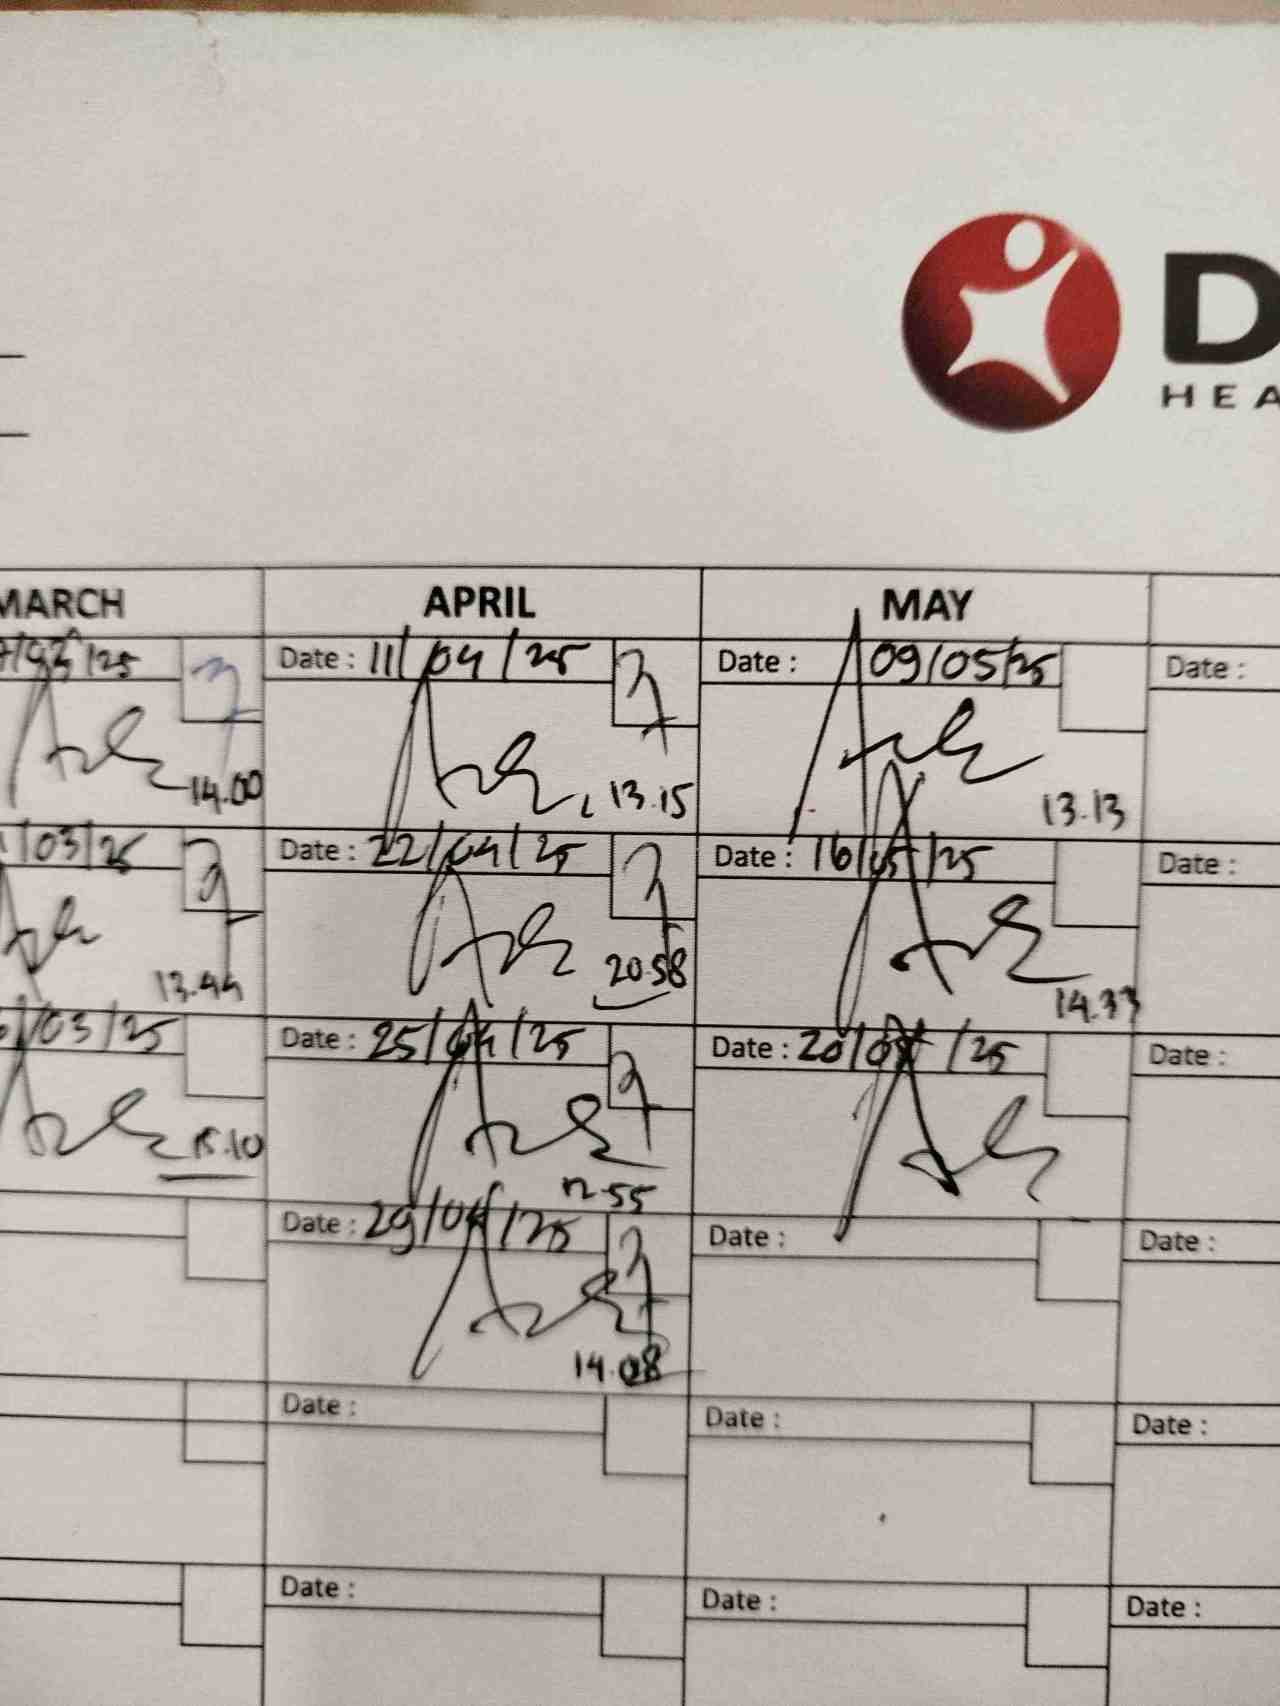 D
HEA
MARCH APRIL MAY
/03/25 Date : 11/04/25 Date : 09/05/25 Date :
14.00 13.15 13.13
/03/25 Date : 22/04/25 Date : 16/05/25 Date :
13.44 20.58 14.33
/03/25 Date : 25/04/25 Date : 20/05/25 Date :
15.10 12.55
Date : 29/04/25 Date : Date :
14.08
Date : Date : Date :
Date : Date : Date :